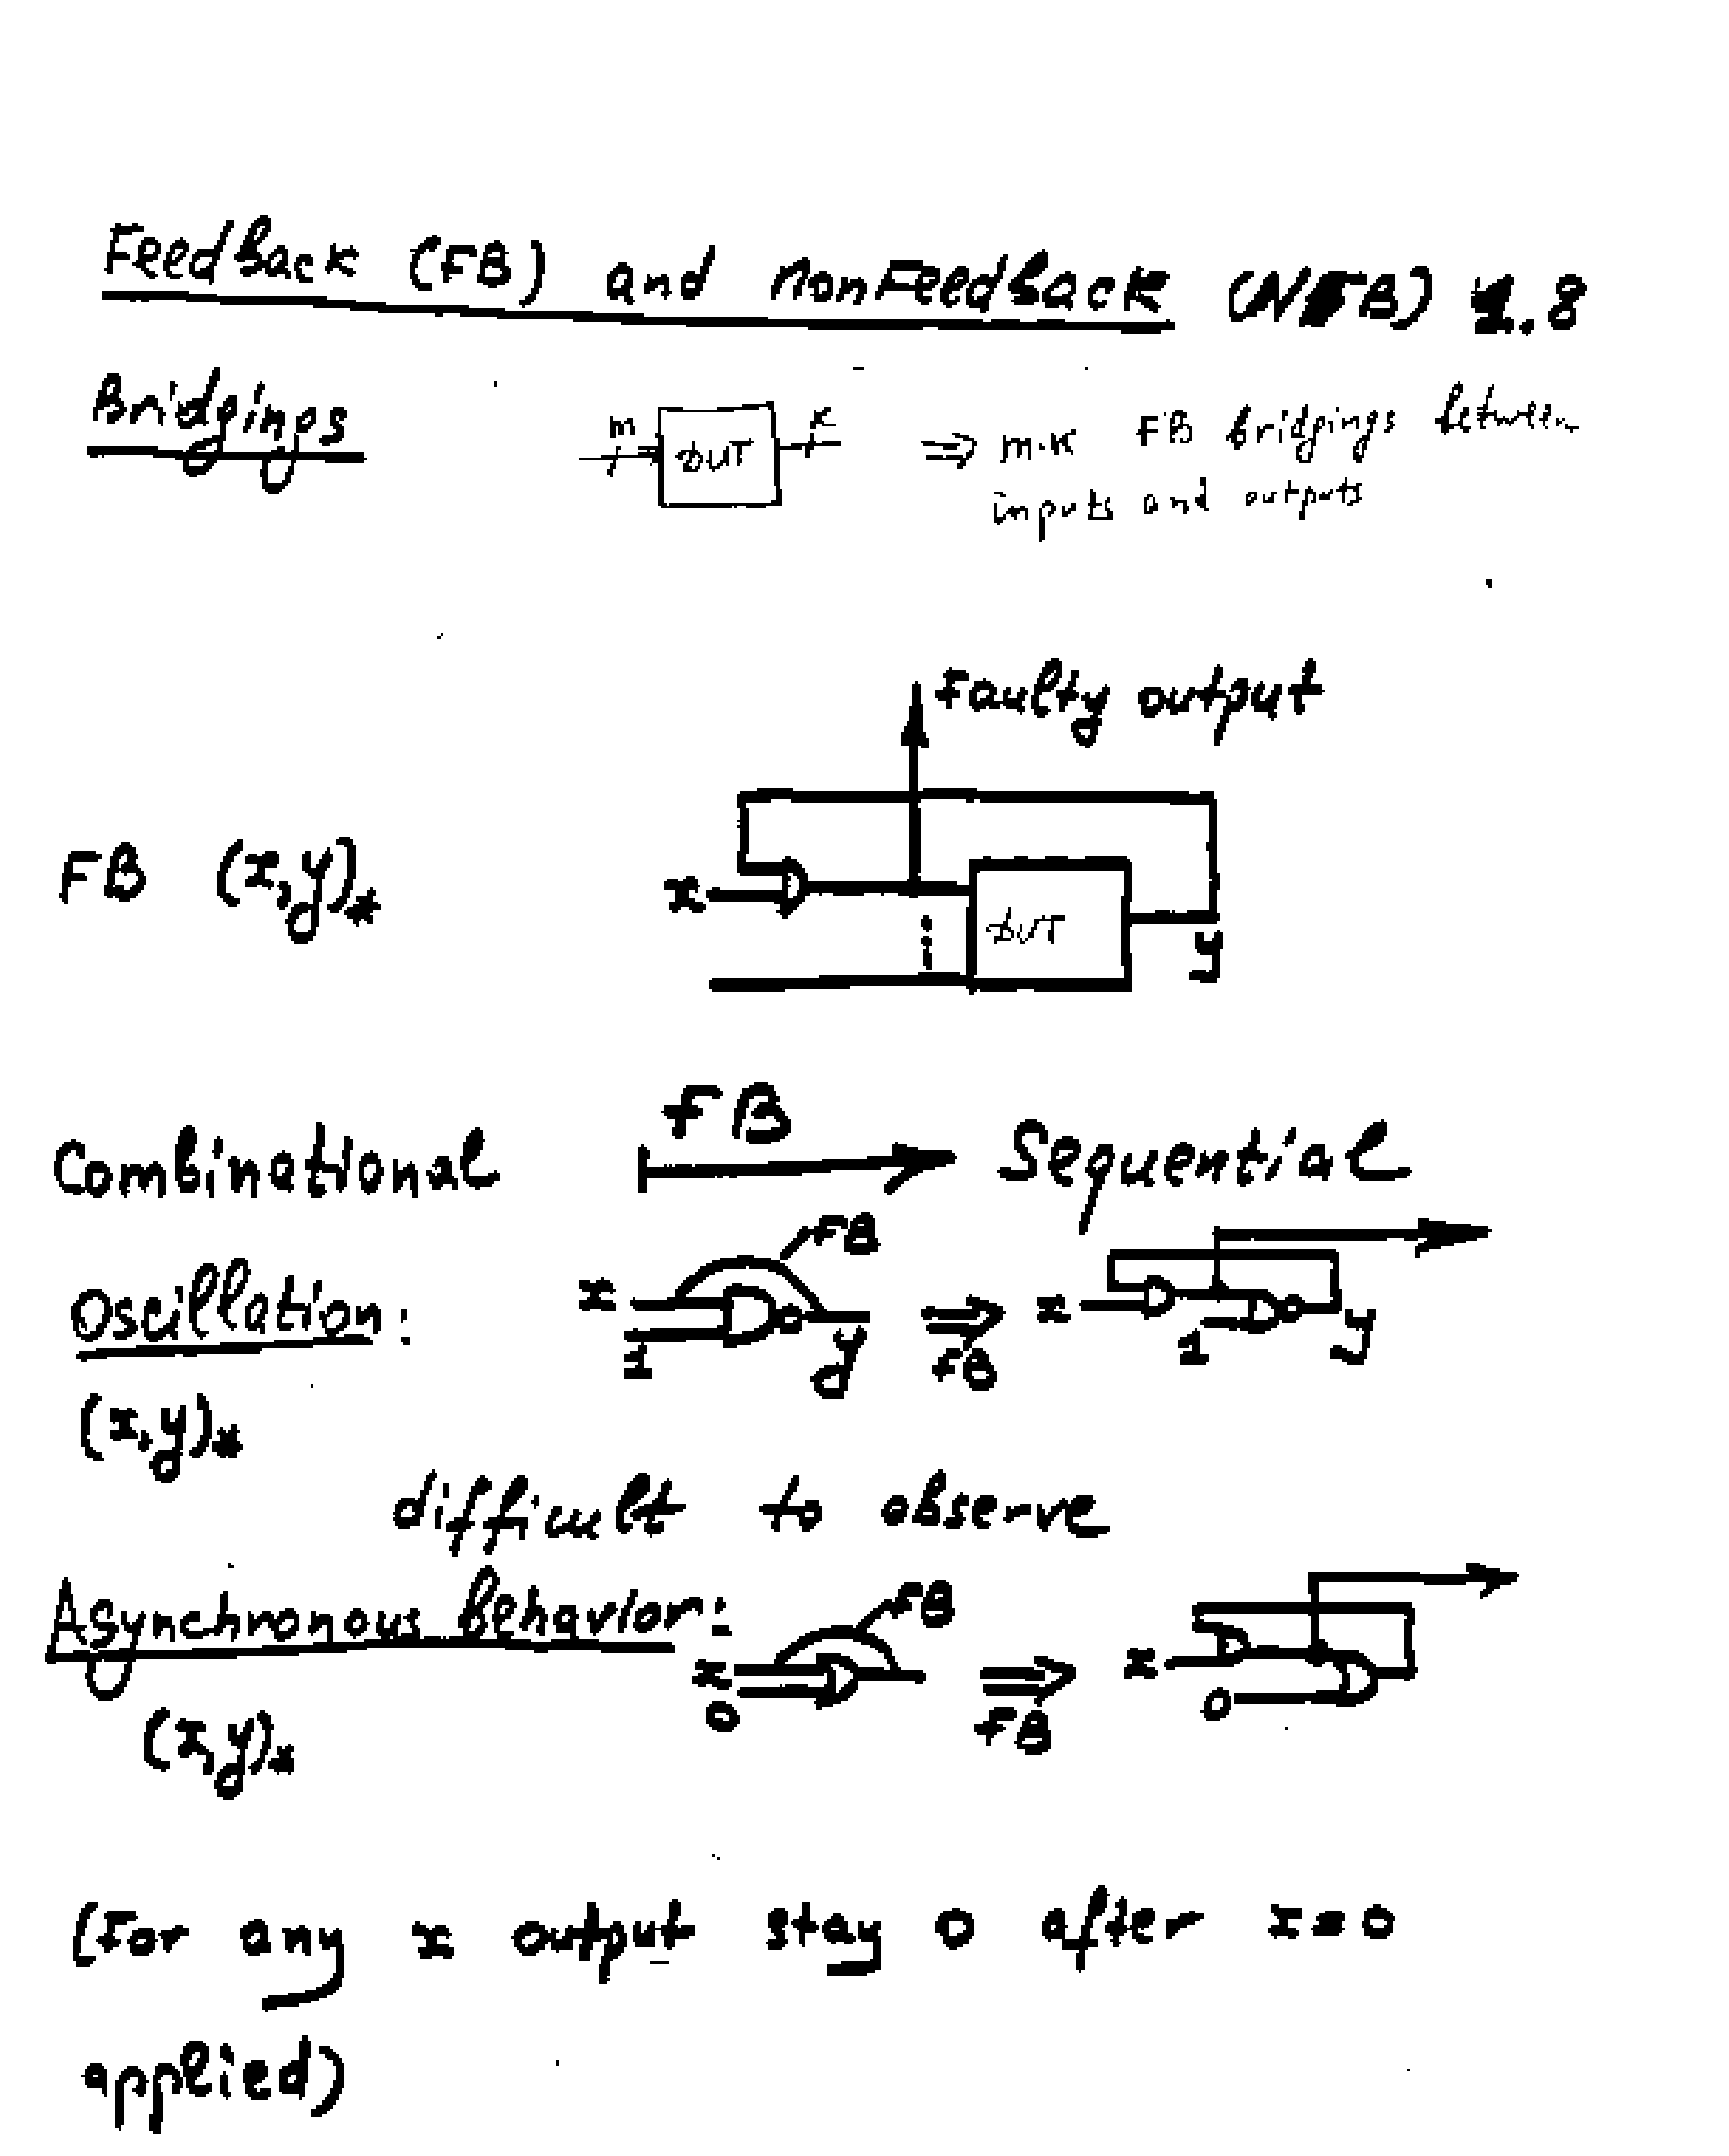 Feedback (FB) and nonFeedback (NFB) 1.8
Bridgings
m DUT K ⇒ m·K FB bridgings between
inputs and outputs
Faulty output
FB (x,y)*
x DUT y
FB
Combinational Sequential
FB
Oscillation: x 1 y ⇒ FB x 1 y
(x,y)*
difficult to observe
Asynchronous behavior: FB
x 0 ⇒ FB x 0
(x,y)*
(For any x output stay 0 after x=0
applied)